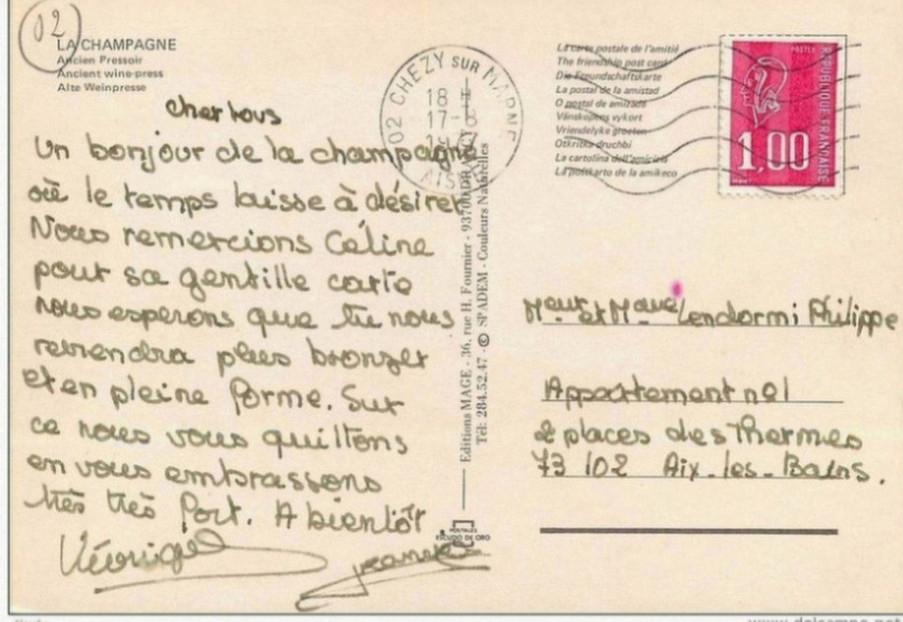 02
LA CHAMPAGNE
Ancien Pressoir
Ancient wine-press
Alte Weinpresse
cher tous
Un bonjour de la champagne
où le temps laisse à désirer
Nous remercions Céline
pour sa gentille carte
nous esperons que tu nous
reviendra plus bronzer
et en pleine forme. Sur
ce nous vous quittons
en vous embrassons
très très fort. A bientôt.
02 CHEZY SUR MARNE
18 H
17-8
AISNE
Editions MAGE - 36, rue H. Fournier - 93700 DRANCY
Tél: 284.52.47 - © SPADEM - Couleurs Naturelles
POSTALES
ESCUDO DE ORO
La carte postale de l'amitié
The friendship post card
Die Freundschaftskarte
La postal de la amistad
O postal de amizade
Vänskapens vykort
Vriendelyke groeten
Otkritka druchbi
La cartolina dell'amicizia
La postkarto de la amikeco
POSTES
REPUBLIQUE FRANÇAISE
1,00
Meur et Maue Lendormi Philippe
Appartement no1
2 places des Thermes
73 102 Aix-les-Bains.
www.delcampe.net